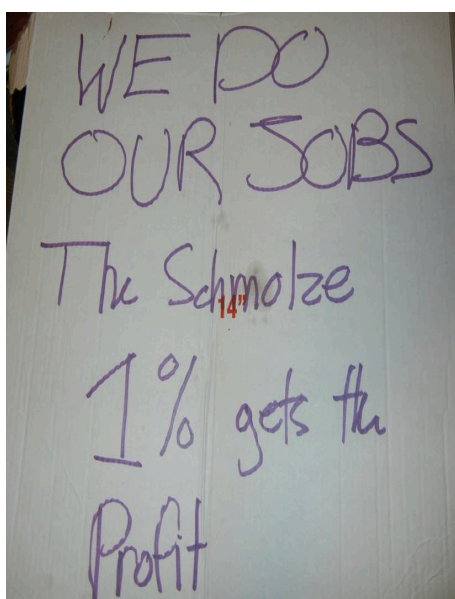 WE DO
OUR JOBS
The Schmolze
14"
1% gets the
Profit